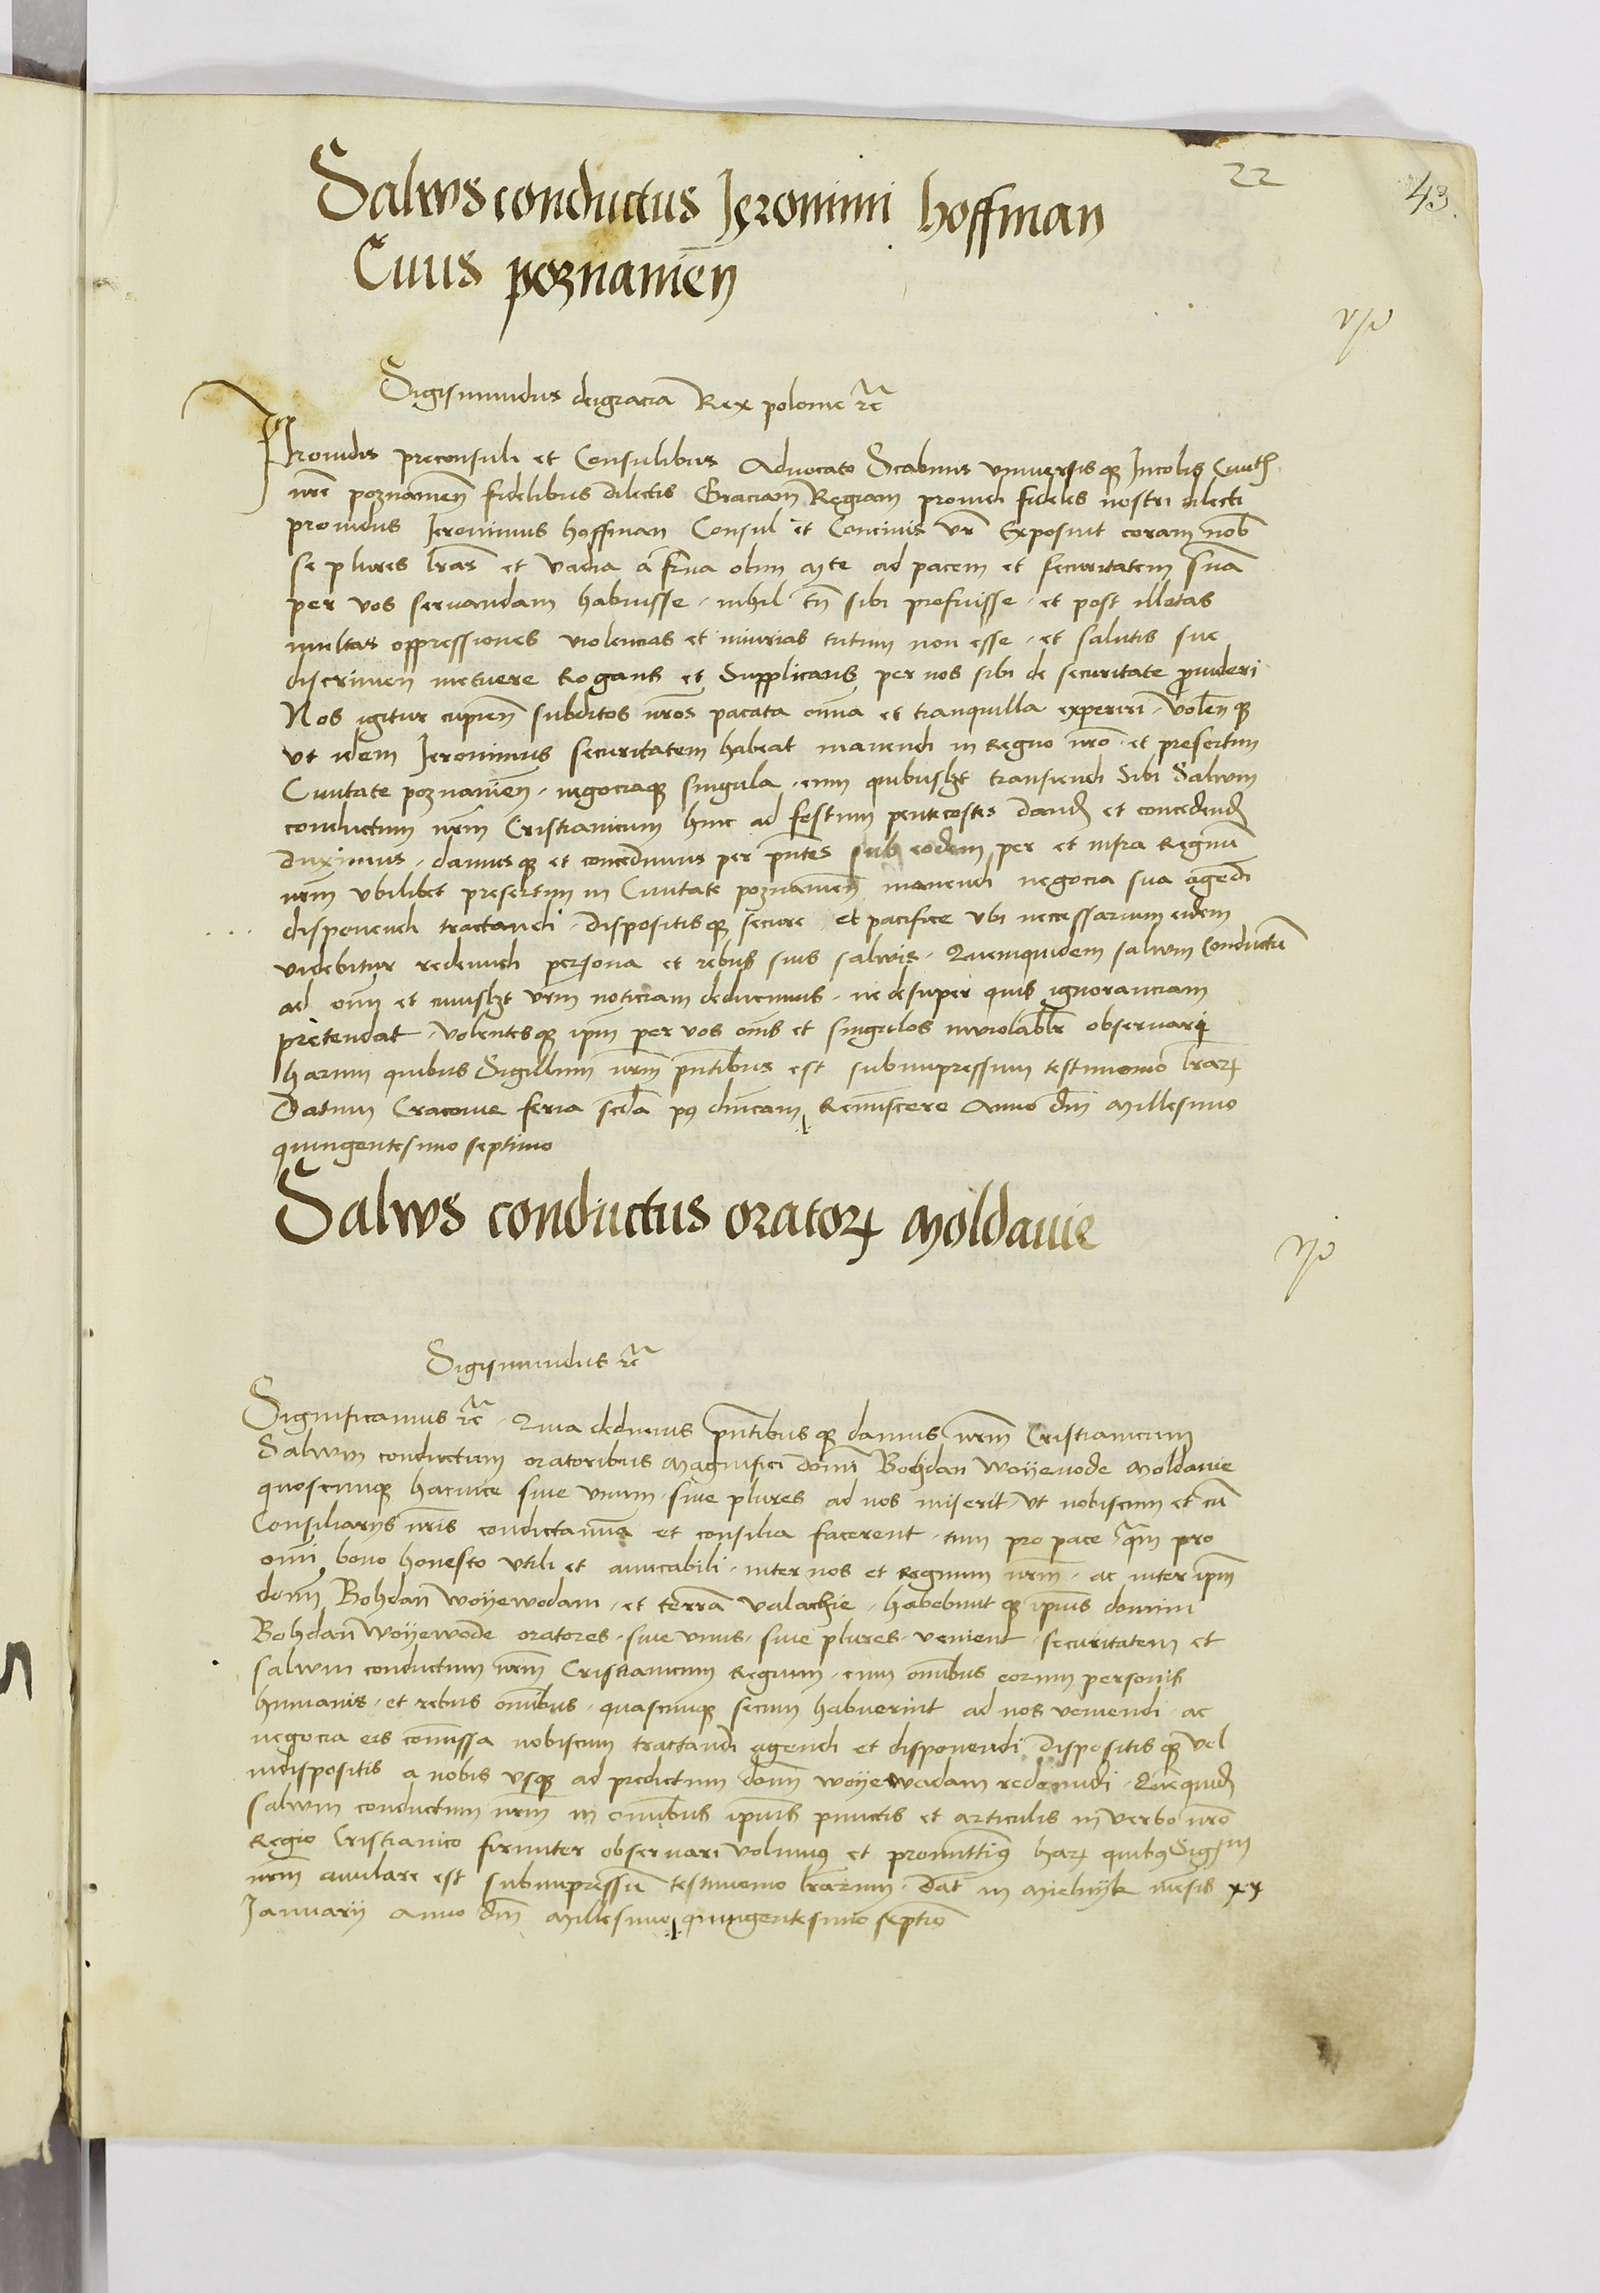 22
43.
Salws conductus Jeronimi Hoffman
Civis poznanien
Sigismundus dei gracia Rex polonie rc
Providis preconsuli et Consulibus Advocato Scabinis universisque Incolis Civith
nre poznanien fidelibus dilectis Graciam Regiam providi fideles nostri dilecti
providus Jeronimus Hoffman Consul et Concivis vr Exposuit coram nob
se plures lras et vadia a fratre olim Mte ad pacem et securitatem sua
per vos servandam habuisse . nihil tn sibi profuisse . et post illatas
multas oppressiones violencias et iniurias tutum non esse . et salutis sue
discrimen metuere Rogans et Supplicans per nos sibi de securitate provideri
Nos igitur cupien subditos nros pacata omnia et tranquilla experiri . volen que
ut idem Jeronimus securitatem habeat manendi in Regno nro . et presertim
Civitate poznanien . negociaque singula . cum quibuslzt transigendi Sibi Salwm
conductum nrm Cristianicum hinc ad festum pentecostes dand et concedend
duximus . damusque et concedimus per pntes sub eodem per et infra Regnu
nrm ubilibet presertim in Civitate poznanien manendi negocia sua agendi
disponendi tractandi . dispositisque secure et pacifice ubi necessarium eidem
videbitur redeundi persona et rebus suis salvis . Quemquidem salwm Conductu
ad oim et cuiuslzt vrm noticiam deducimus . ne desuper quis ignoranciam
pretendat . volentesque ipm per vos omes et singulos inviolabilr observari
harum quibus Sigillum nrm pntibus est subimpressum testimonio lrar
Datum Cracovie feria scda p9 dnicam Reminiscere Anno dni Millesimo
quingentesimo septimo
Salws conductus orator Moldavie
Sigismundus rc
Significamus rc . Quia dedimus pntibusque damus nrm Cristianicum
Salwm conductum oratoribus Magnifici domini Bohdan Woyevode Moldavie
quoscunque hac vice sive unum . sive plures ad nos miserit . ut nobiscum et cu
Consiliarys nris condictamina et consilia facerent . tum pro pace qm pro
omi bono honesto utili et amicabili . inter nos et Regnum nrm . ac inter ipm
dom Bohdan woyewodam . et terra valachie . habebuntque ipius domini
Bohdan Woyewode oratores . sive unus . sive plures . venient . securitatem et
salwm conductum nrm Cristianicum Regium . cum omibus eorum personis
humanis . et rebus omibus . quascunque secum habuerint ad nos veniendi . ac
negocia eis comissa nobiscum tractandi agendi et disponendi Dispositisque vel
indispositis a nobis usque ad predictum dom woyewodam redeundi . Quequid
salwm conductum nrm in omibus ipius punctis et articulis in verbo nro
Regio Cristianico firmiter observari volumus et promittim9 har quib9 Sigm
nrm anulare est subimpressu testimonio lrarum . Dat in Mielnyk mesis xx
January Anno dni Millesimo quingentesimo septio